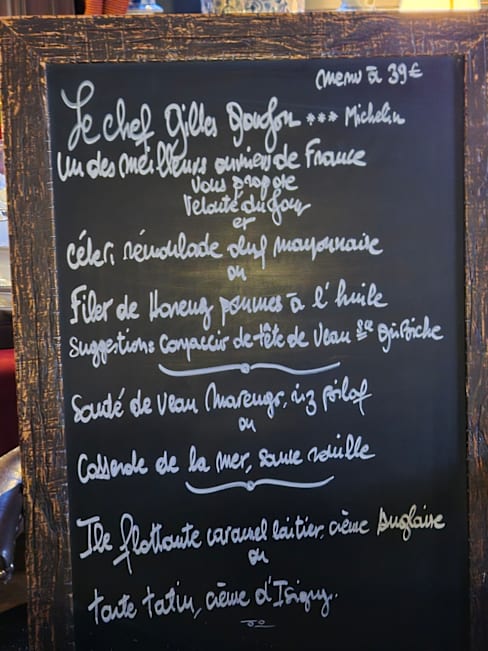 menu à 39€
Le chef Gilles Goujon *** Michelin
Un des meilleurs ouvriers de France
vous propose
Velouté du jour
et
céleri rémoulade œuf mayonnaise
ou
Filet de Hareng pommes à l'huile
Suggestions Carpaccio de tête de veau sce Gribiche
Sauté de veau Marengo, riz pilaf
ou
Casserole de la mer, sauce rouille
Ile flottante caramel laitier, crème Anglaise
ou
tarte tatin, crème d'Isigny..